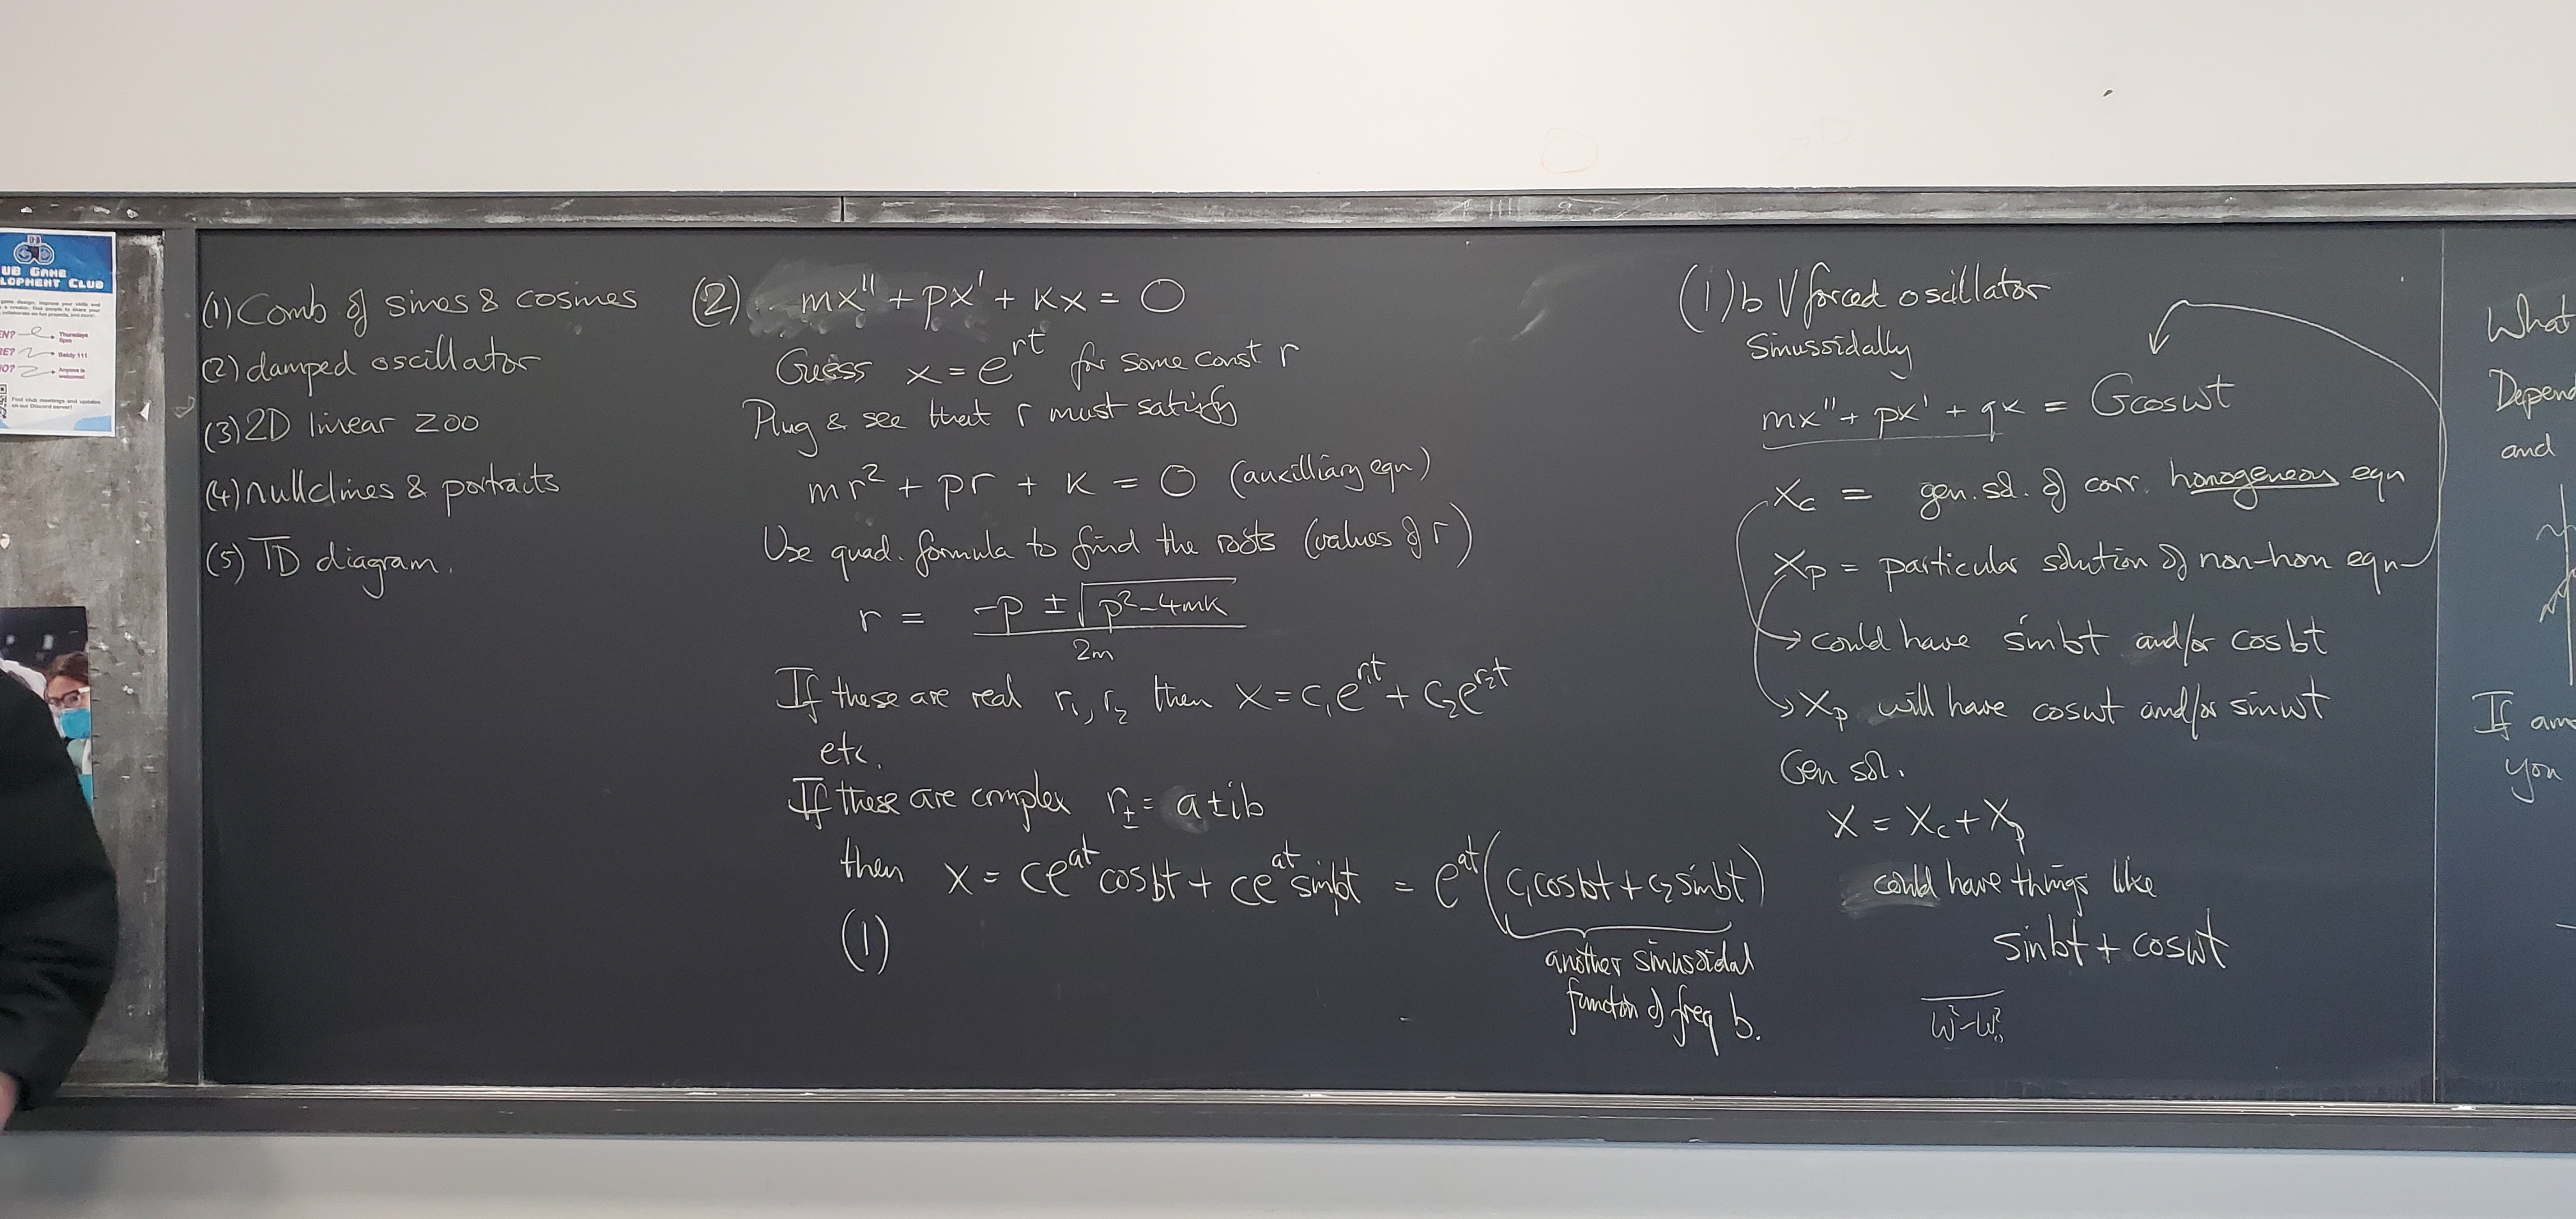 UB GAME
LOPMENT CLUB
Thursdays
5pm
RE?
Baldy 111
Anyone is
welcome!
Find club meetings and updates
on our Discord server!
(1) Comb of sines & cosines
(2) damped oscillator
(3) 2D linear zoo
(4) nullclines & portraits
(5) TD diagram.
(2) mx'' + px' + kx = 0
Guess x = e^{rt} for some const r
Plug & see that r must satisfy
mr² + pr + k = 0 (auxilliary eqn)
Use quad. formula to find the roots (values of r)
r = \frac{-p ± \sqrt{p²-4mk}}{2m}
If these are real r₁, r₂ then x = c₁e^{r₁t} + c₂e^{r₂t}
etc.
If these are complex r_± = a ± ib
then x = ce^{at} cosbt + ce^{at} sinbt = e^{at}(c₁cosbt + c₂sinbt)
another sinusoidal
function of freq b.
(1)
(1)b V forced oscillator
Sinussidally
mx'' + px' + qx = Gcoswt
Xc = gen. sol. of corr. homogeneous eqn
Xp = particular solution of non-hom eqn
could have sinbt and/or cosbt
Xp will have coswt and/or sinwt
Gen sol.
X = Xc + Xp
could have things like
sinbt + coswt
w²-w₀²
What
Depend
and
If
you